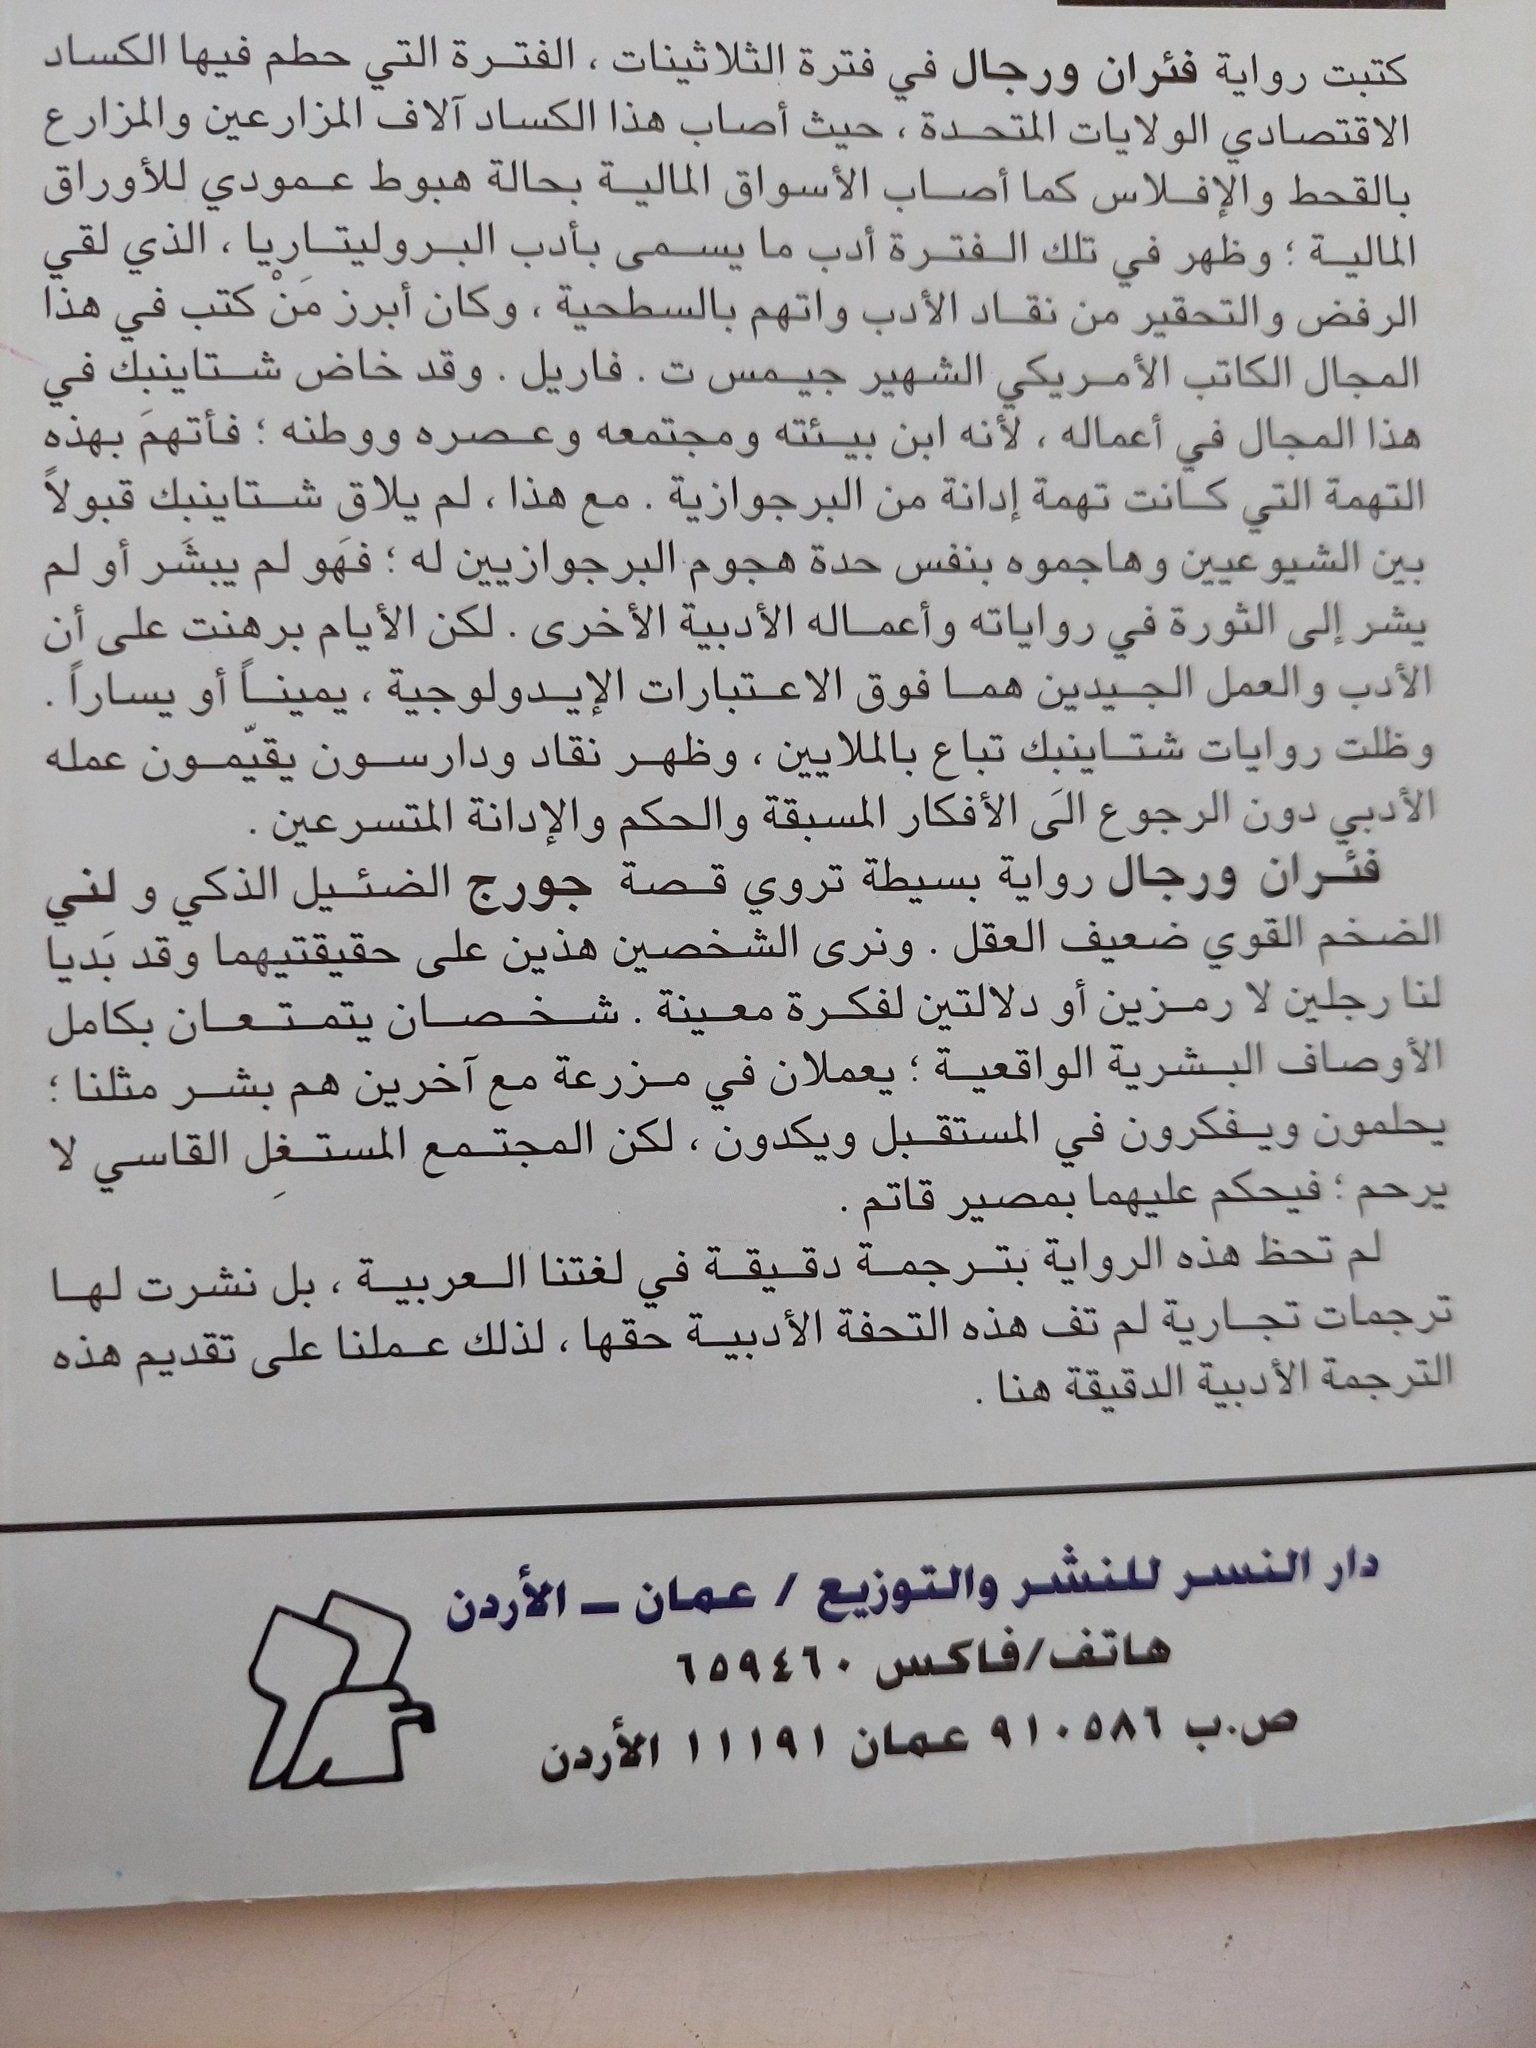 كتبت رواية فئران ورجال في فترة الثلاثينات ، الفترة التي حطم فيها الكساد
الاقتصادي الولايات المتحدة ، حيث أصاب هذا الكساد آلاف المزارعين والمزارع
بالقحط والإفلاس كما أصاب الأسواق المالية بحالة هبوط عمودي للأوراق
المالية ؛ وظهر في تلك الفترة أدب ما يسمى بأدب البروليتاريا ، الذي لقي
الرفض والتحقير من نقاد الأدب واتهم بالسطحية ، وكان أبرز مَنْ كتب في هذا
المجال الكاتب الأمريكي الشهير جيمس ت . فاريل . وقد خاض شتاينبك في
هذا المجال في أعماله ، لأنه ابن بيئته ومجتمعه وعصره ووطنه ؛ فأتهمَ بهذه
التهمة التي كانت تهمة إدانة من البرجوازية . مع هذا ، لم يلاق شتاينبك قبولاً
بين الشيوعيين وهاجموه بنفس حدة هجوم البرجوازيين له ؛ فهَو لم يبشَر أو لم
يشر إلى الثورة في رواياته وأعماله الأدبية الأخرى . لكن الأيام برهنت على أن
الأدب والعمل الجيدين هما فوق الاعتبارات الإيدولوجية ، يميناً أو يساراً .
وظلت روايات شتاينبك تباع بالملايين ، وظهر نقاد ودارسون يقيّمون عمله
الأدبي دون الرجوع الَى الأفكار المسبقة والحكم والإدانة المتسرعين .
فئران ورجال رواية بسيطة تروي قصة جورج الضئيل الذكي و لني
الضخم القوي ضعيف العقل . ونرى الشخصين هذين على حقيقتيهما وقد بَديا
لنا رجلين لا رمزين أو دلالتين لفكرة معينة . شخصان يتمتعان بكامل
الأوصاف البشرية الواقعية ؛ يعملان في مزرعة مع آخرين هم بشر مثلنا ؛
يحلمون ويفكرون في المستقبل ويكدون ، لكن المجتمع المستغِل القاسي لا
يرحم ؛ فيحكم عليهما بمصير قاتم .
لم تحظ هذه الرواية بترجمة دقيقة في لغتنا العربية ، بل نشرت لها
ترجمات تجارية لم تف هذه التحفة الأدبية حقها ، لذلك عملنا على تقديم هذه
الترجمة الأدبية الدقيقة هنا .
دار النسر للنشر والتوزيع / عمان – الأردن
هاتف/فاكس ٦٥٩٤٦٠
ص.ب ٩١٠٥٨٦ عمان ١١١٩١ الأردن